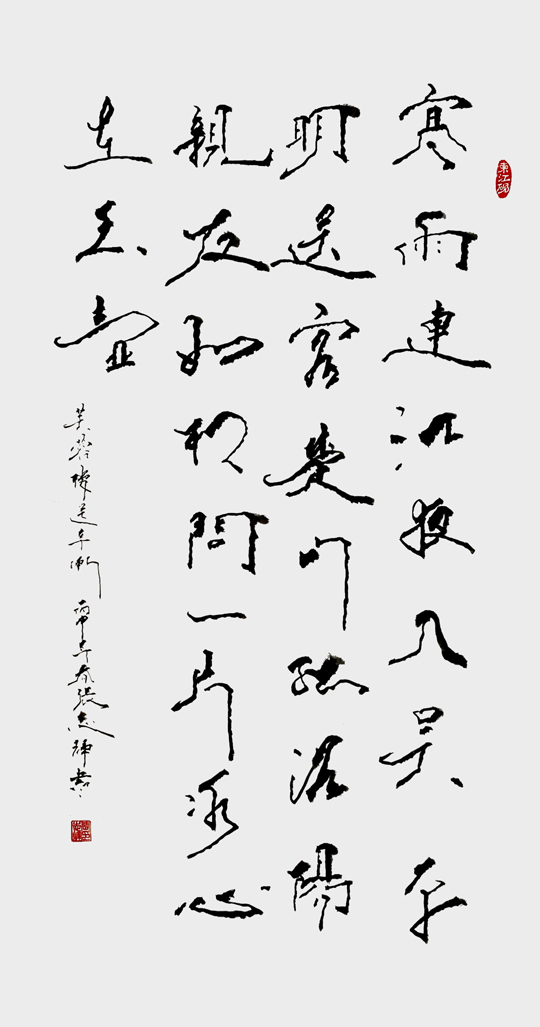 寒雨連江夜入吳平
明送客楚山孤洛陽
親友如相問一片冰心
在玉壺
芙蓉樓送辛漸 丙申年春張志輝書